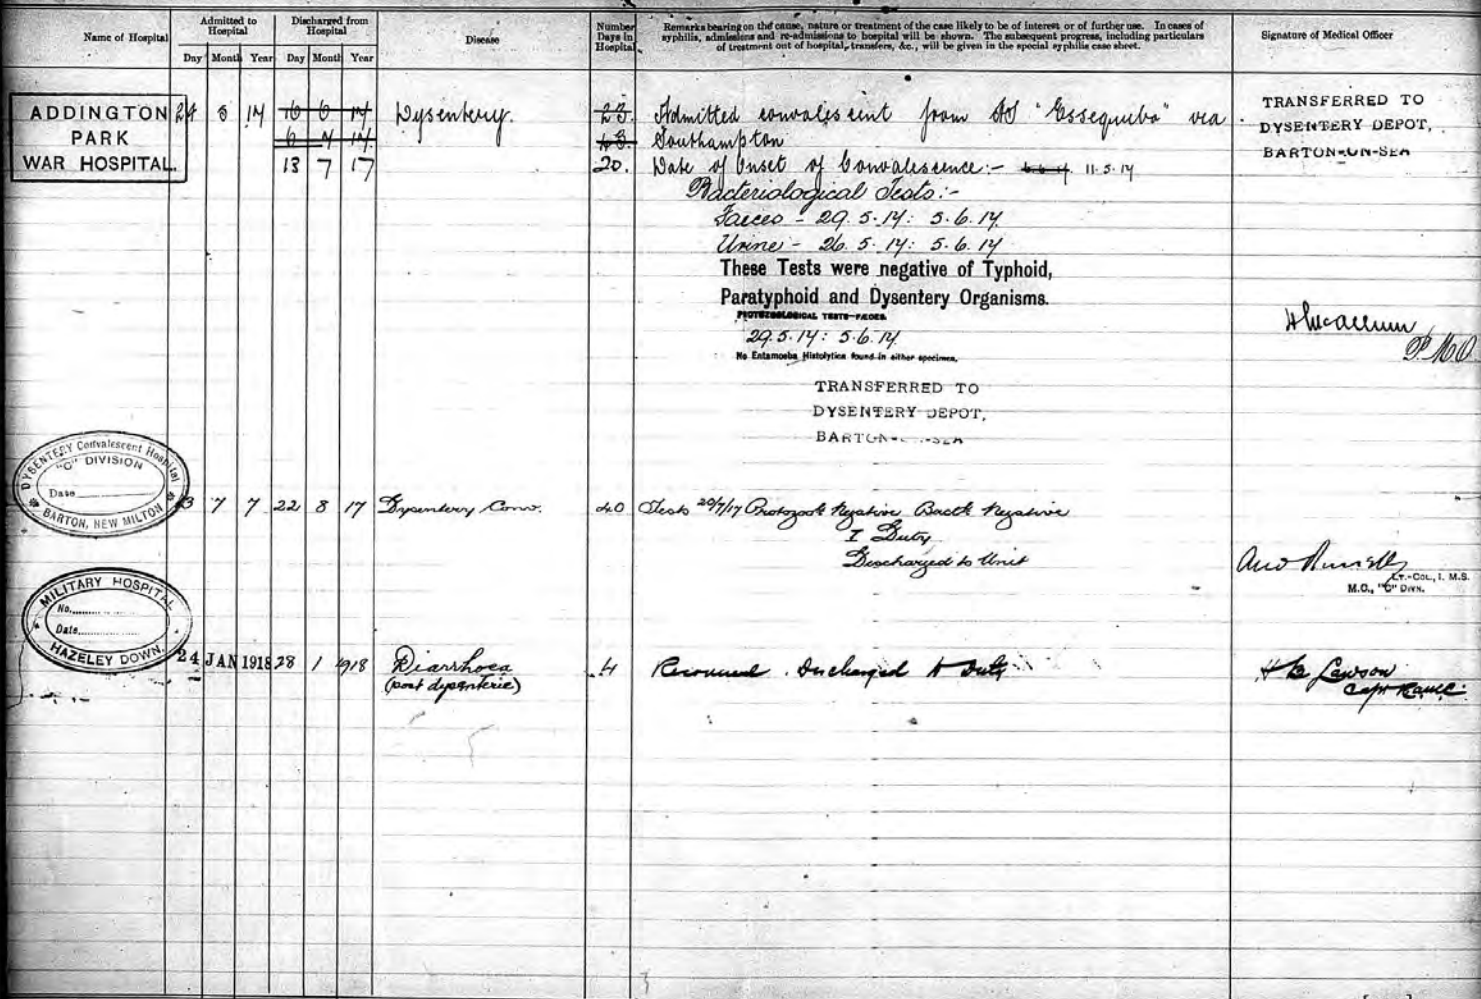 Name of Hospital
Admitted to Hospital
Discharged from Hospital
Disease
Number Days in Hospital
Remarks bearing on the cause, nature or treatment of the case likely to be of interest or of further use. In cases of
syphilis, admissions and re-admissions to hospital will be shown. The subsequent progress, including particulars
of treatment out of hospital, transfers, &c., will be given in the special syphilis case sheet.
Signature of Medical Officer
Day Month Year Day Month Year
ADDINGTON
PARK
WAR HOSPITAL.
24 5 17 Dysentery. 23. Admitted convalescent from HS "Essequibo" via
Southampton
13 7 17 20. Date of Onset of Convalescence:- 11.5.17
Bacteriological Tests:-
Faeces - 29.5.17: 5.6.17
Urine - 26.5.17: 5.6.17
These Tests were negative of Typhoid,
Paratyphoid and Dysentery Organisms.
PROTOZOOLOGICAL TESTS-FÆCES.
29.5.17: 5.6.17
No Entamoeba Histolytica found in either specimen.
TRANSFERRED TO
DYSENTERY DEPOT,
BARTON-ON-SEA
P.M.O
TRANSFERRED TO
DYSENTERY DEPOT,
BARTON-ON-SEA
DYSENTERY Convalescent Hospital
"C" DIVISION
Date
BARTON, NEW MILTON
13 7 7 22 8 17 Dysentery Conv. 40 Tests 20/7/17 Protozool Negative Bactl Negative
I Duty
Discharged to Unit
LT.-COL., I. M.S.
M.O., "C" DIVN.
MILITARY HOSPITAL
No.
Date
HAZELEY DOWN.
24 JAN 1918 28 1 1918 Diarrhoea 4 Recovered. Discharged to Duty
(post dysenteric)
Lawson
Capt RAMC